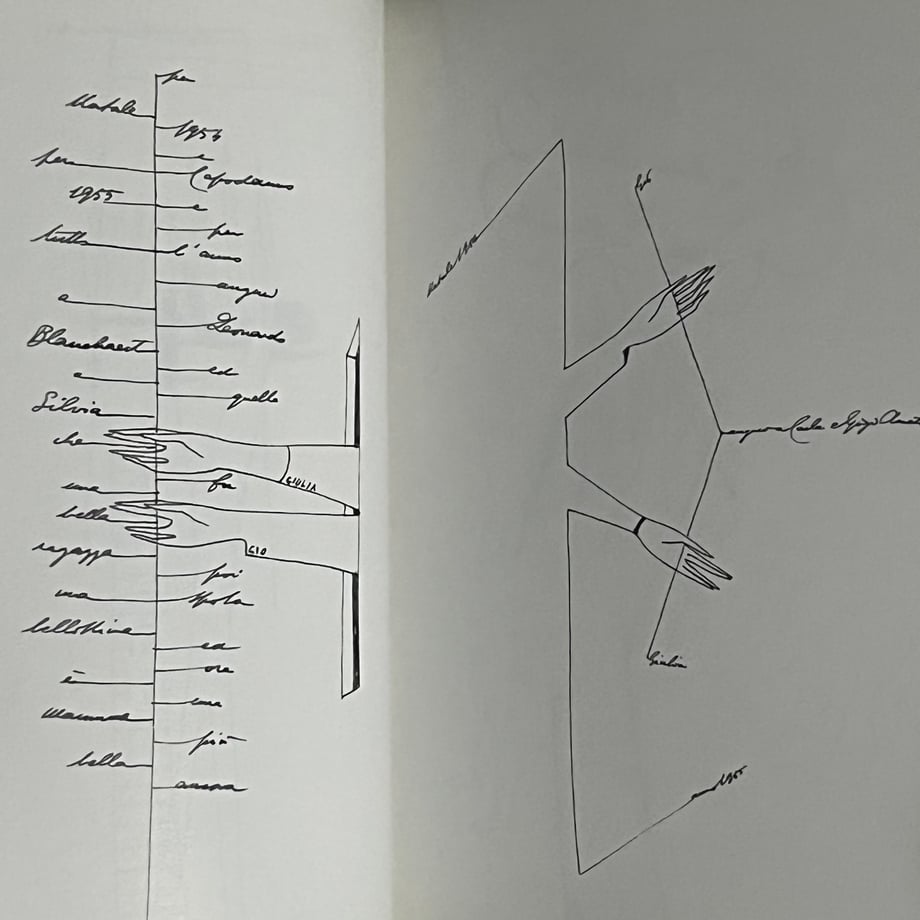 per
Natale
1954
e
per
Capodanno
1955
e
per
tutto
l'anno
auguri
a
Leonardo
Blanchaert
ed
a
quella
Silvia
che
fu
una
bella
ragazza
poi
una
sposa
bellottina
ed
ora
è
una
mamma
più
bella
ancora
GIULIA
GIO
Natale 1954
auguri a Carla e Gigi
Giulia
anno 1955